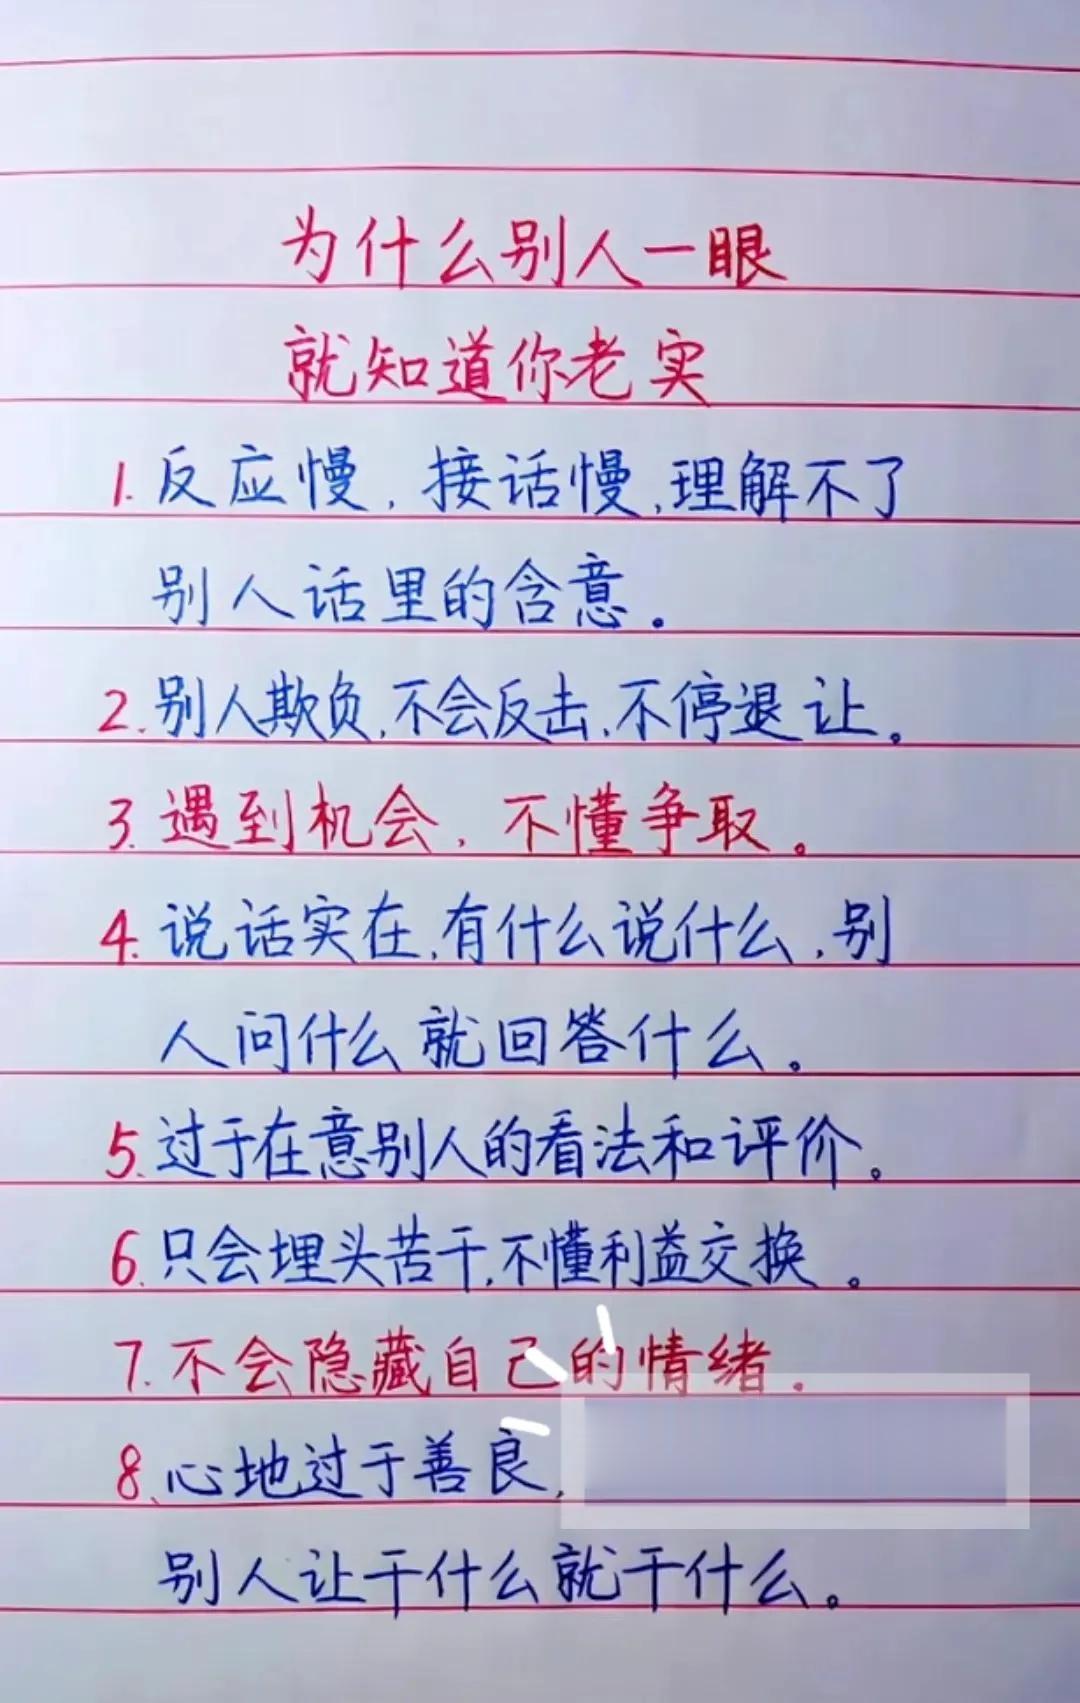 为什么别人一眼
就知道你老实
1.反应慢,接话慢,理解不了
别人话里的含意。
2.别人欺负,不会反击,不停退让。
3.遇到机会,不懂争取。
4.说话实在,有什么说什么,别
人问什么就回答什么。
5.过于在意别人的看法和评价。
6.只会埋头苦干,不懂利益交换。
7.不会隐藏自己的情绪.
8、心地过于善良,
别人让干什么就干什么。